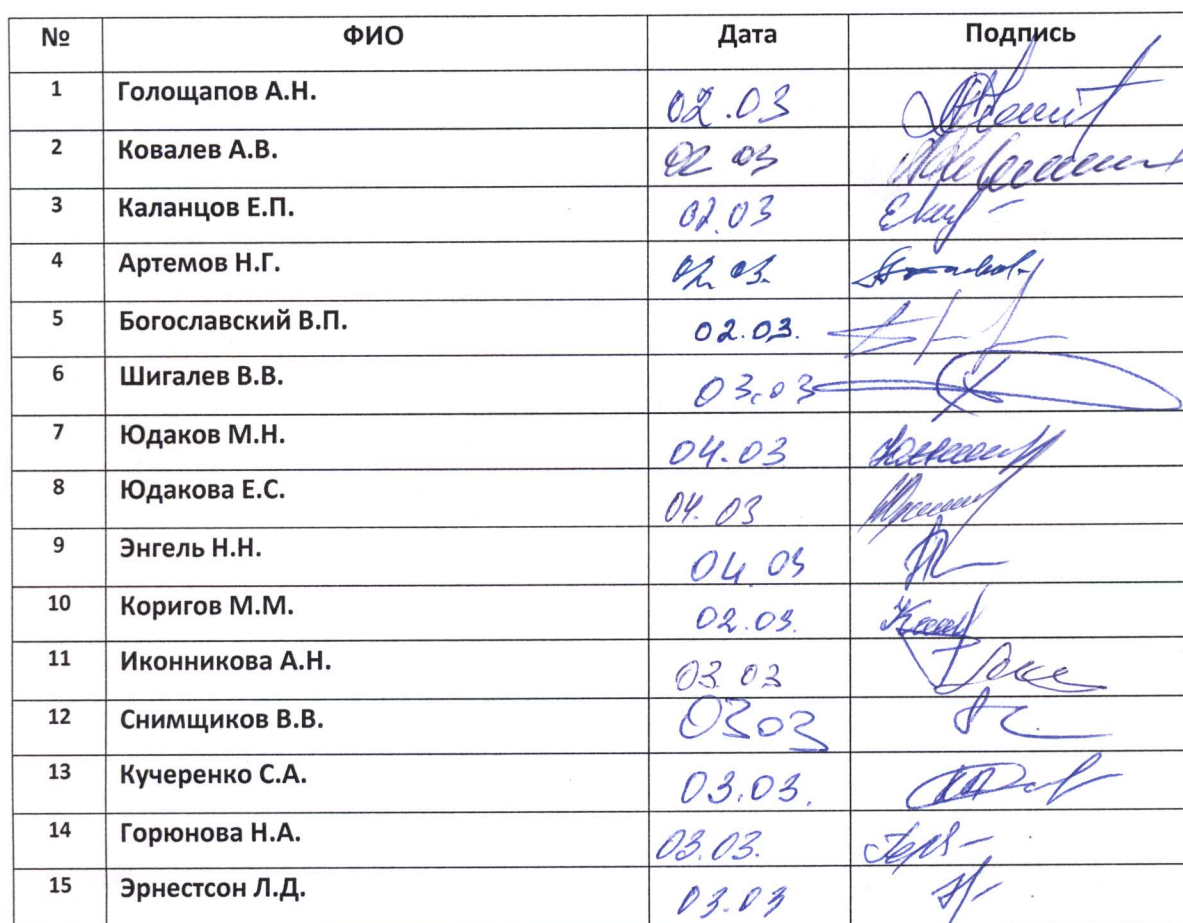 № ФИО Дата Подпись
1 Голощапов А.Н. 02.03
2 Ковалев А.В. 02 03
3 Каланцов Е.П. 02.03
4 Артемов Н.Г. 02 03.
5 Богославский В.П. 02.03.
6 Шигалев В.В. 03.03
7 Юдаков М.Н. 04.03
8 Юдакова Е.С. 04.03
9 Энгель Н.Н. 04 03
10 Коригов М.М. 02.03.
11 Иконникова А.Н. 03.03
12 Снимщиков В.В. 03 03
13 Кучеренко С.А. 03.03.
14 Горюнова Н.А. 03.03.
15 Эрнестсон Л.Д. 03.03